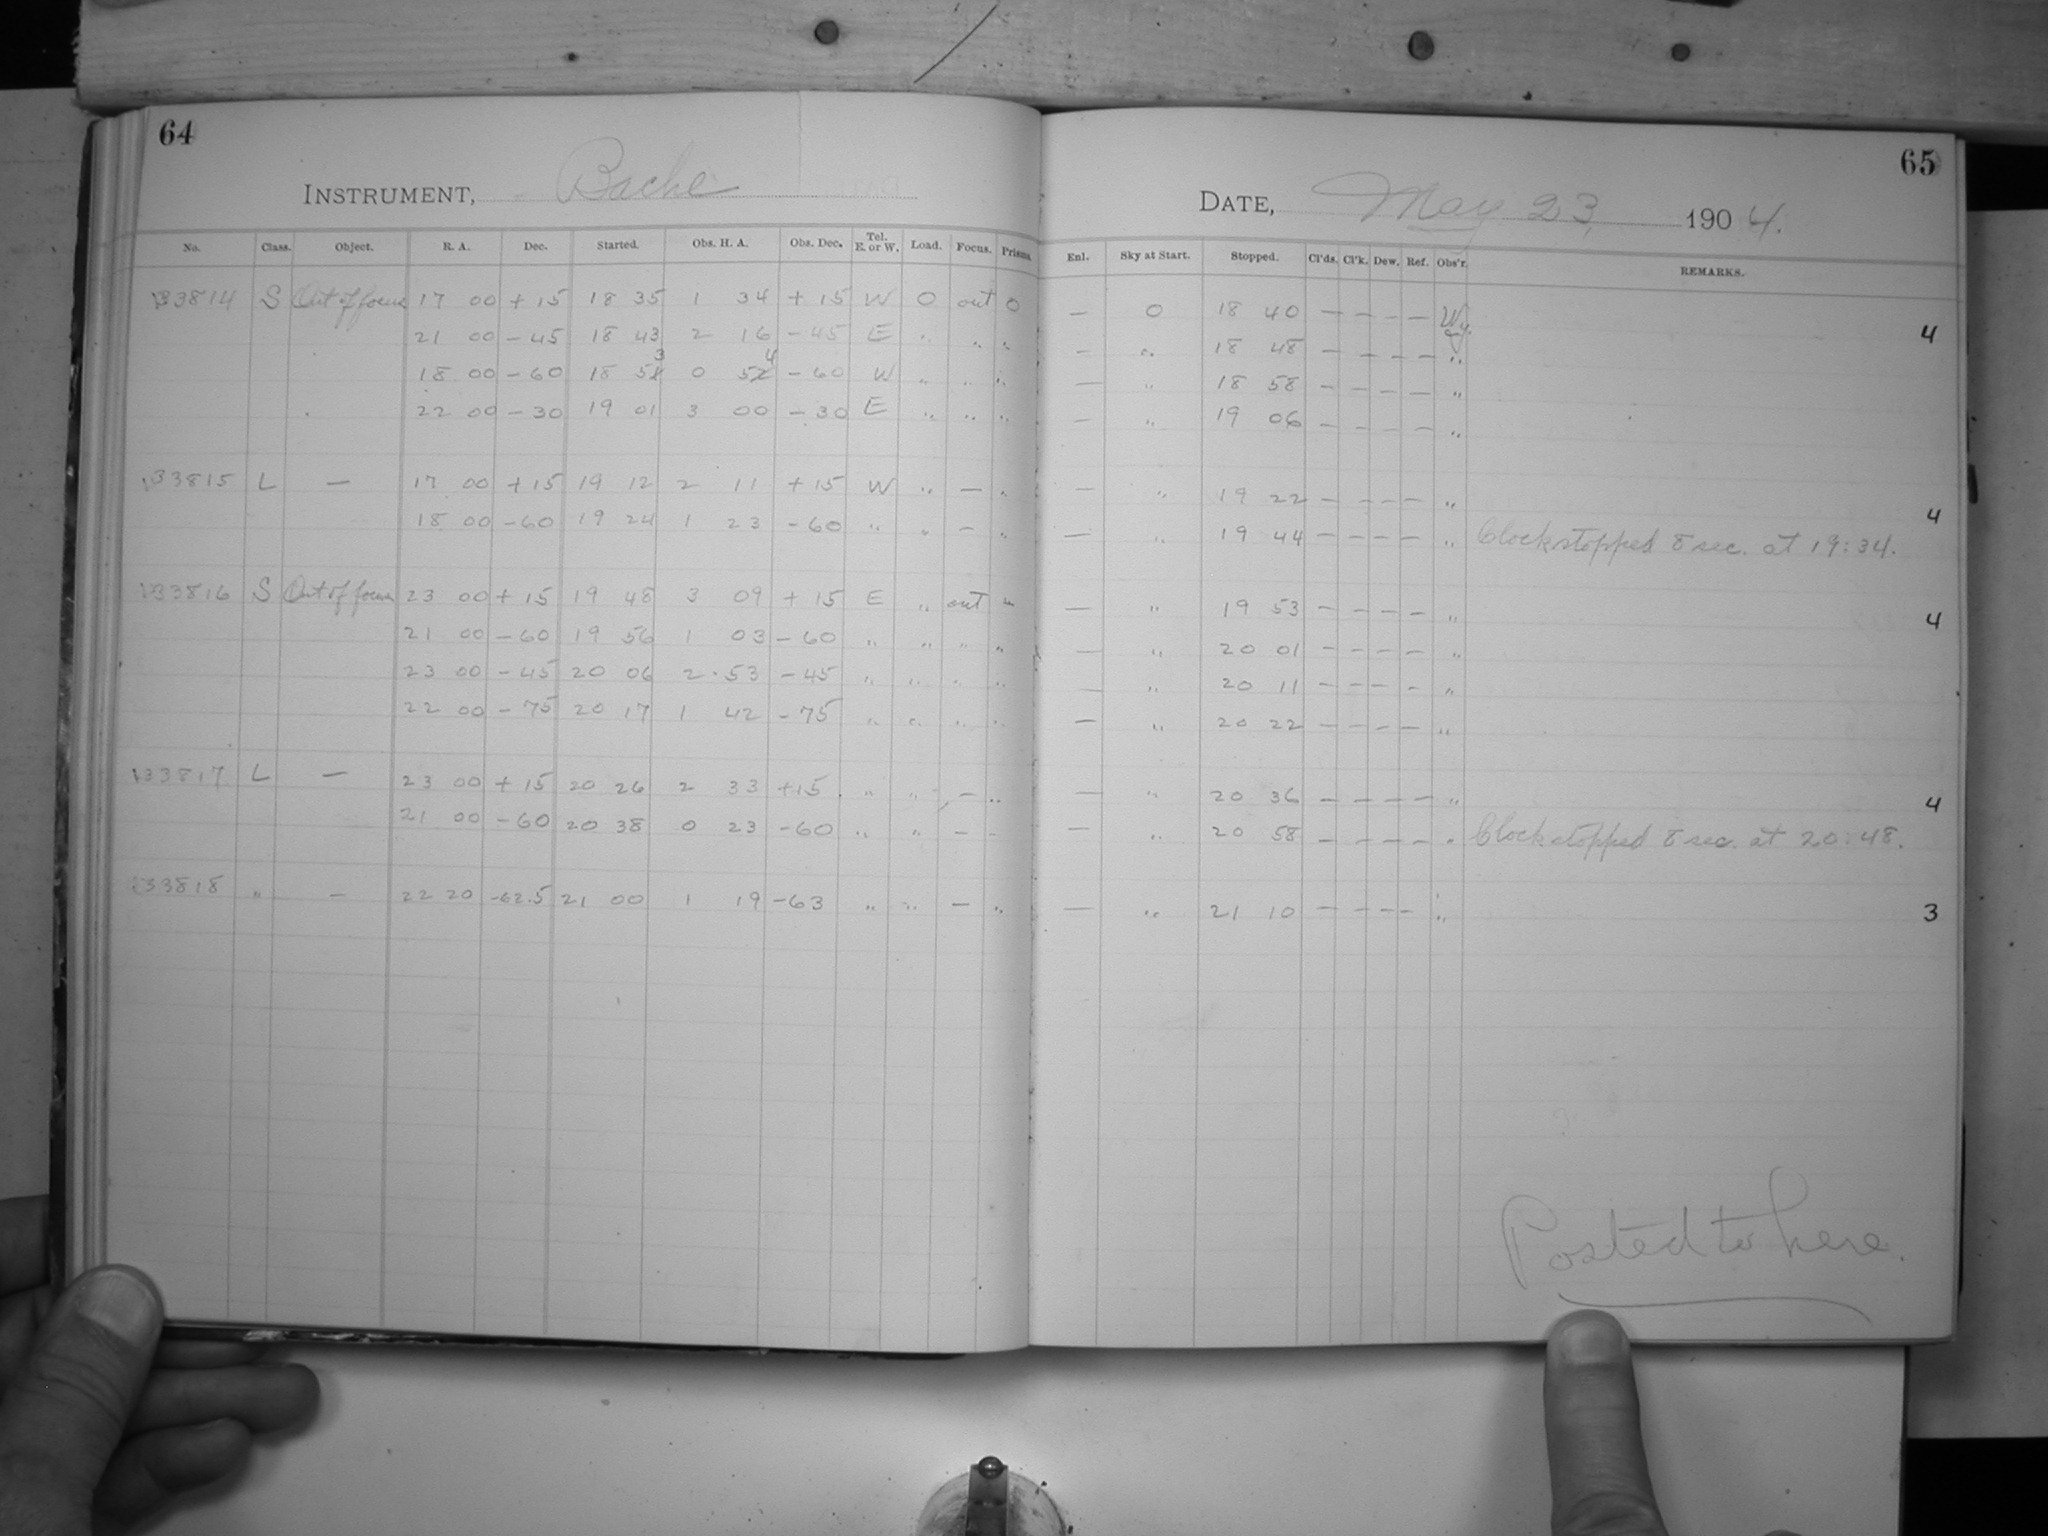 64
INSTRUMENT, Bache
No. Class. Object. R. A. Dec. Started. Obs. H. A. Obs. Dec. Tel. E. or W. Load. Focus. Prisms.
33814 S Out of focus 17 00 + 15 18 35 1 34 + 15 W O out O
21 00 - 45 18 43 2 16 - 45 E " " "
18 00 - 60 18 53 0 54 - 60 W " " "
22 00 - 30 19 01 3 00 - 30 E " " "
33815 L — 17 00 + 15 19 12 2 11 + 15 W " — "
18 00 - 60 19 24 1 23 - 60 " " — "
33816 S Out of focus 23 00 + 15 19 48 3 09 + 15 E " out "
21 00 - 60 19 56 1 03 - 60 " " " "
23 00 - 45 20 06 2 53 - 45 " " " "
22 00 - 75 20 17 1 42 - 75 " " " "
33817 L — 23 00 + 15 20 26 2 33 +15 " " — "
21 00 - 60 20 38 0 23 - 60 " " — -
33818 " — 22 20 -62.5 21 00 1 19 -63 " " — "
65
DATE, May 23, 1904.
Enl. Sky at Start. Stopped. Cl'ds. Cl'k. Dew. Ref. Obs'r. REMARKS.
— O 18 40 — — — — Wy. 4
— " 18 48 — — — — "
— " 18 58 — — — — "
— " 19 06 — — — — "
— " 19 22 — — — — " 4
— " 19 44 — — — — " Clock stopped 8 sec. at 19:34.
— " 19 53 — — — — " 4
— " 20 01 — — — — "
— " 20 11 — — — — "
— " 20 22 — — — — "
— " 20 36 — — — — " 4
— " 20 58 — — — — " Clock stopped 8 sec. at 20:48.
— " 21 10 — — — — " 3
Posted to here.